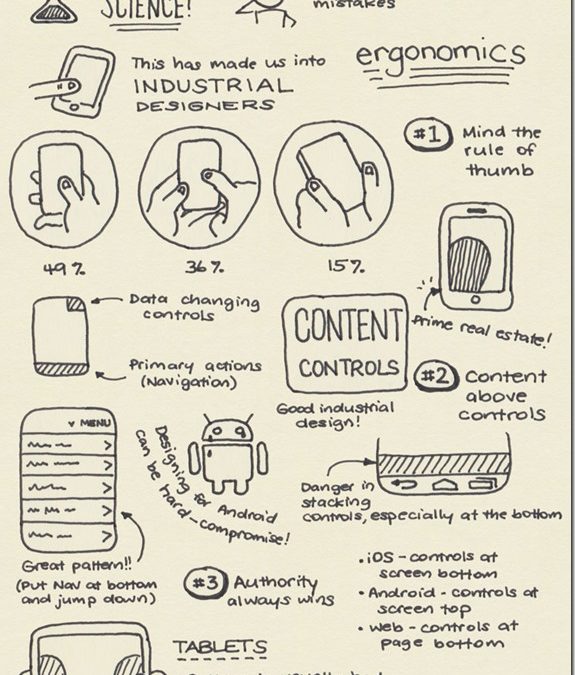 SCIENCE!
mistakes
This has made us into
INDUSTRIAL
DESIGNERS
ergonomics
#1 Mind the
rule of
thumb
49%
36%
15%
Prime real estate!
Data changing
controls
Primary actions
(Navigation)
CONTENT
CONTROLS
Good industrial
design!
#2 Content
above
controls
MENU
Great pattern!!
(Put Nav at bottom
and jump down)
Designing for Android
can be hard-compromise!
Danger in
stacking
controls, especially at the bottom
#3 Authority
always wins
• iOS - controls at
screen bottom
• Android - controls at
screen top
• Web - controls at
page bottom
TABLETS